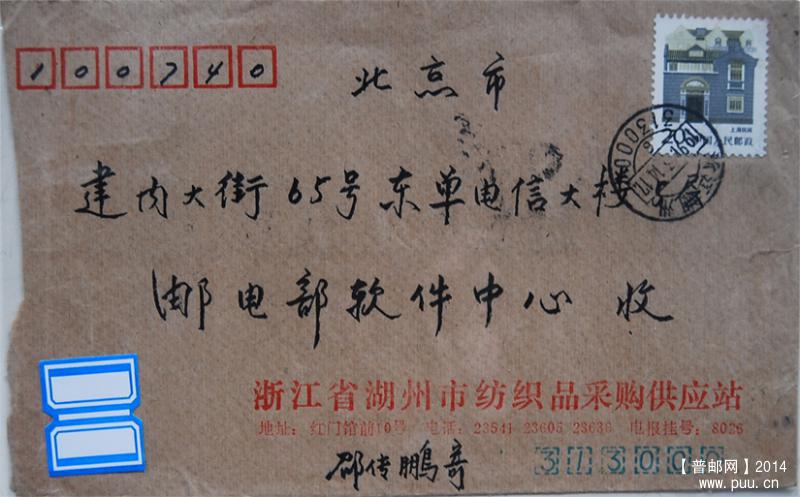 100740
北京市
上海民居
20 中国人民邮政
313000
建内大街65号东单电信大楼
邮电部软件中心 收
浙江省湖州市纺织品采购供应站
地址：红门馆前10号 电话：23541 23605 23636 电报挂号：8026
邵传鹏寄
313000
【普邮网】2014
www.puu.cn